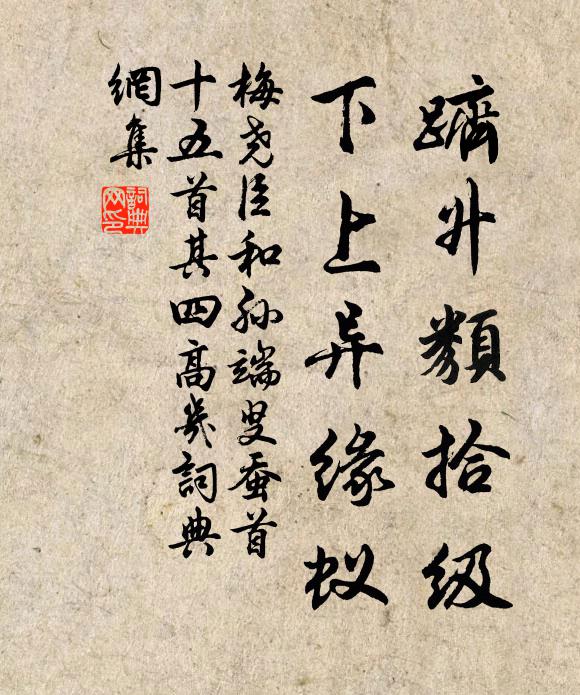 躋升類拾级
下上异缘蚁
梅尧臣和孙端叟蚕首
十五首其四高几詞典
網集
詞典
网印